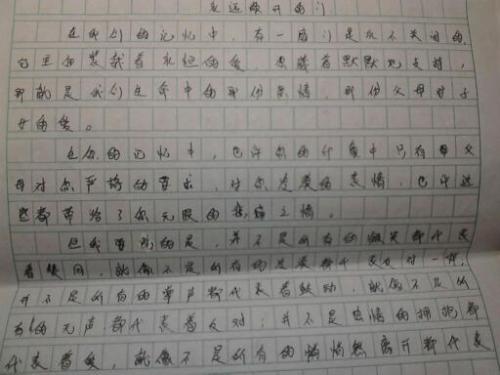 永远敞开的门
在我们的记忆中,有一扇门是永不关闭的,
它里面装载着永恒的爱,蕴藏着默默地支持,
那就是我们生命中的那份亲情,那份父母对子
女的爱。
在你的记忆中,也许你的印象中只有父
母对你严格的要求,对你发火的表情,也许这
些都带给了你无限的之情。
但我要说的是,并不是所有的微笑都代表
着赞同,就像不是所有的发火都代表反对一样;
并不是所有的掌声都代表着鼓动,就像不是所
有的无声都代表着反对;并不是热情的拥抱都
代表着爱,就像不是所有的悄悄然离开都代表